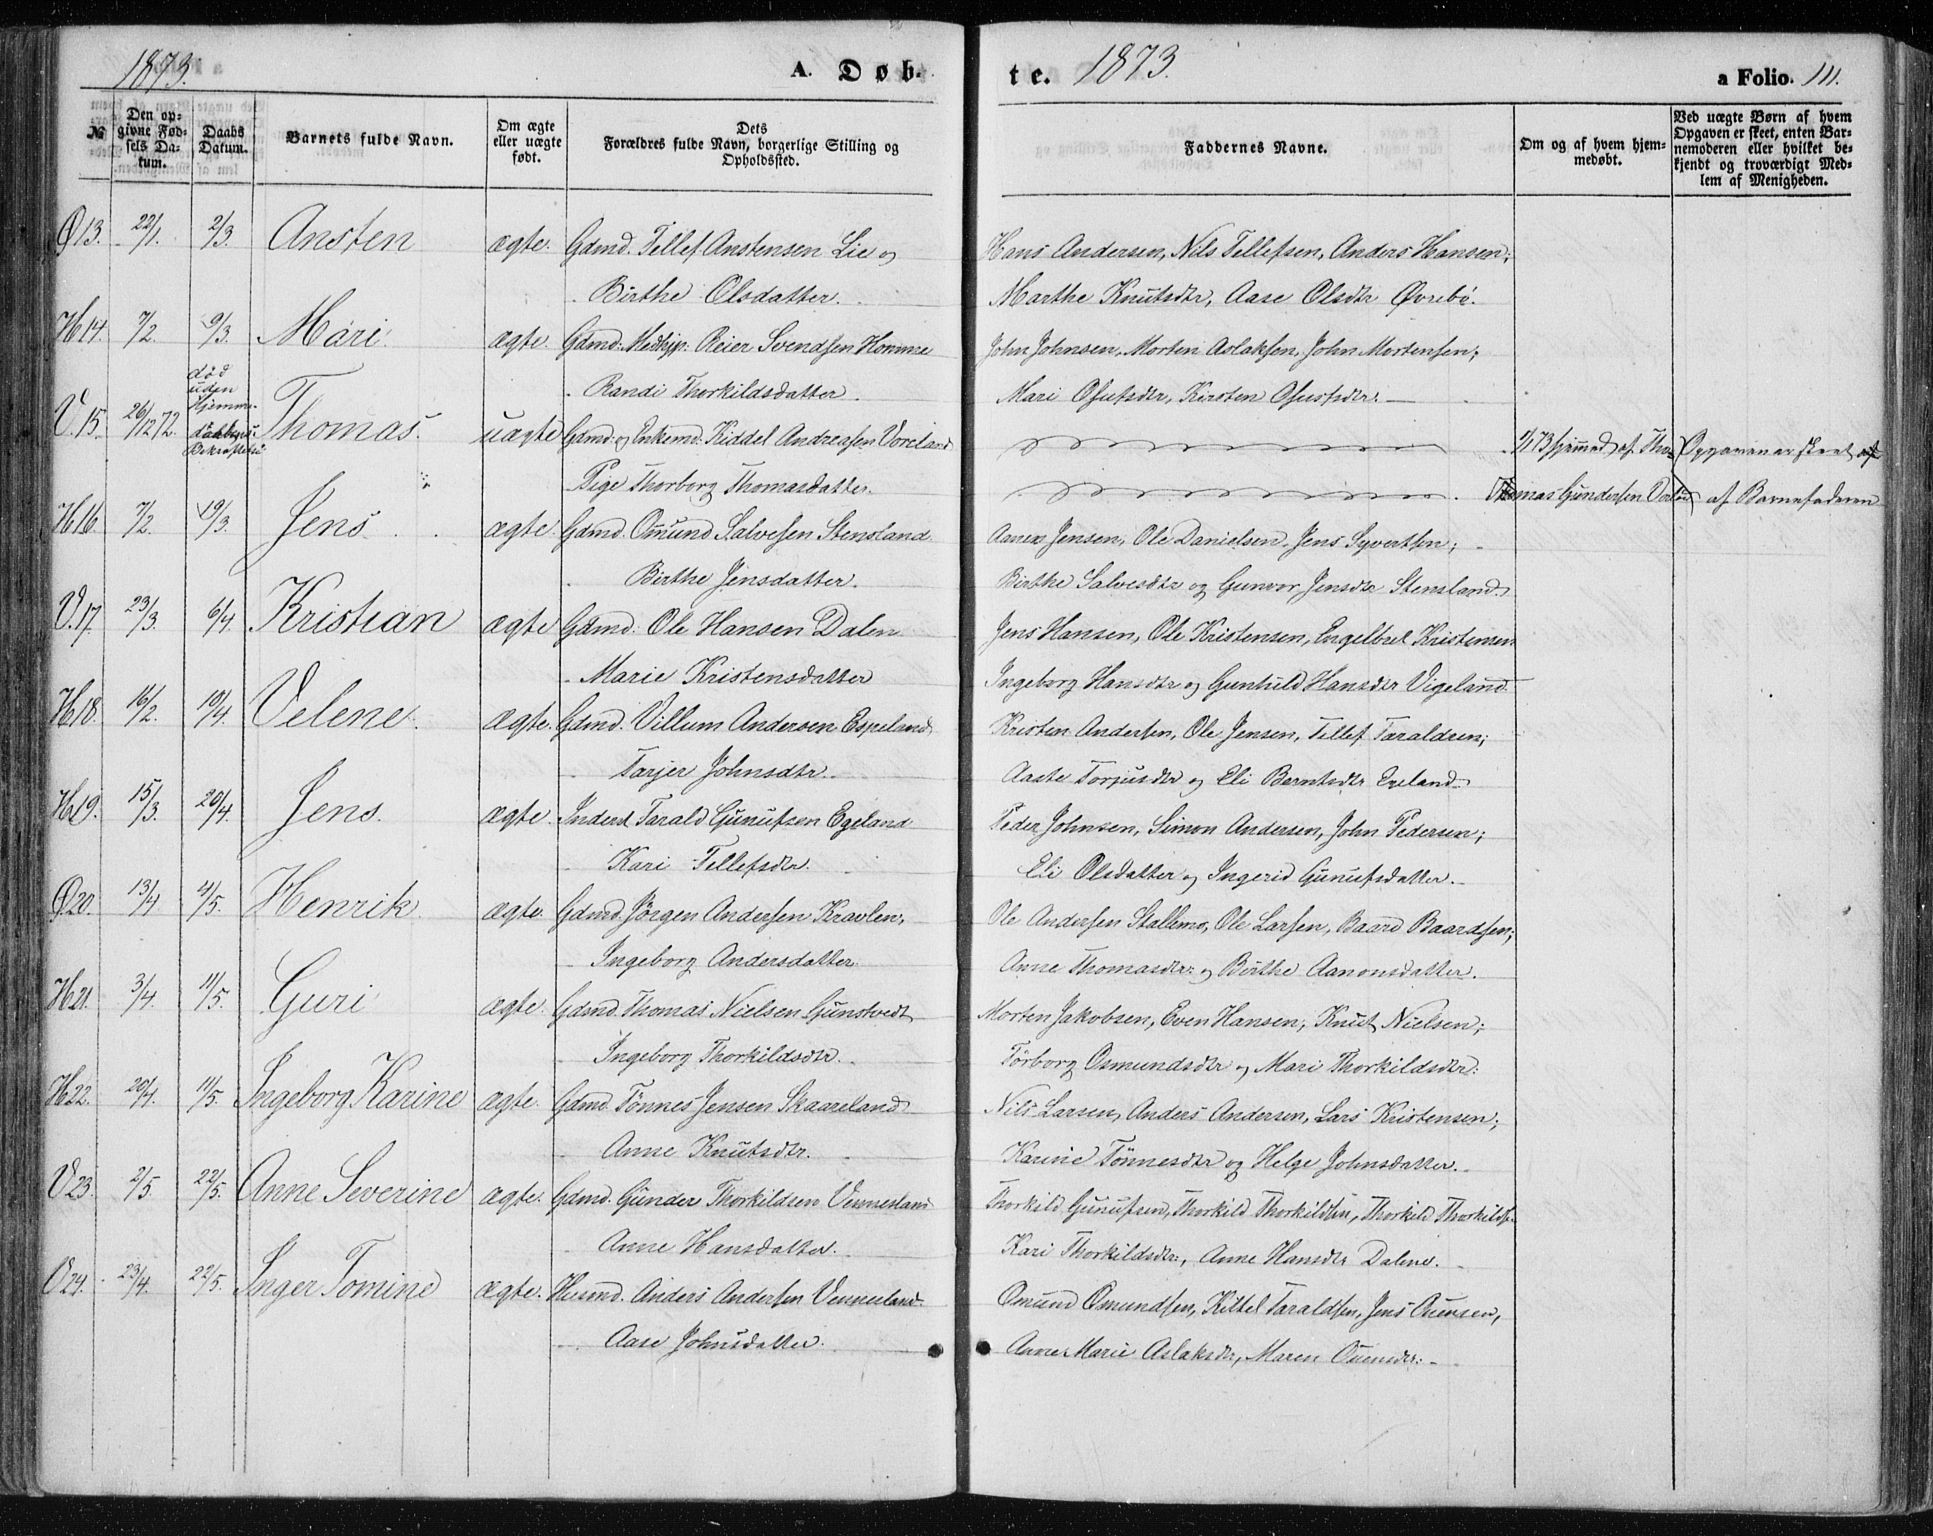 1873.
A. Døb-
te. 1873.
a Folio. 111.
№
Den opgivne Fødsels Datum.
Daabs Datum.
Barnets fulde Navn.
Om ægte eller uægte født.
Dets Forældres fulde Navn, borgerlige Stilling og Opholdssted.
Faddernes Navne.
Om og af hvem hjemmedøbt.
Ved uægte Børn af hvem Opgaven er skeet, enten Barnemoderen eller hvilket bekjendt og troværdigt Medlem af Menigheden.
Ø13. 22/1. 2/3. Ansten ægte. Gdmd. Tellef Anstensen Lie og Hans Andersen, Nils Tellefsen, Anders Hansen;
Birthe Olsdatter. Marthe Knutsdtr, Aase Olsdtr Øvrebö.
H14. 7/2. 9/3. Mari ægte. Gdmd. Medhjp. Reier Svendsen Homme John Johnsen, Morten Aslaksen, John Mortensen;
Randi Thorkildsdatter. Mari Osufsdtr, Kirsten Osufsdtr.
V.15. 26/12 72. död uden Hjemmedaabens Bekræftelse Thomas. uægte Gdmd. og Enkemd. Kiddel Andreasen Voreland 1/1 73 hjemmed. af Tho- Opgaven er skeet af
Pige Thorborg Thomasdatter. Thomas Gundersen Vorland af Barnefaderen
H16. 7/2. 19/3. Jens ægte. Gdmd. Omund Salvesen Stensland Jensen, Ole Danielsen, Jens Syvertsen;
Birthe Jensdatter. Birthe Salvesdtr og Gunvor Jensdtr Stensland
V.17. 23/3. 6/4. Kristian ægte Gdmd. Ole Hansen Dalen Jens Hansen, Ole Kristensen, Engelbret Kristensen
Marie Kristensdatter Ingeborg Hansdtr og Gunhild Hansdtr Vigeland
H18. 16/2. 10/4. Velene. ægte. Gdmd. Villum Andersen Espeland Kristen Andersen, Ole Jensen, Tellef Taraldsen;
Tarjer Johnsdtr. Aaste Torjusdtr og Eli Berntsdtr Egeland
H19. 15/3. 20/4. Jens. ægte. Inderst Tarald Gunufsen Egeland Peder Johnsen, Simon Andersen, John Pedersen;
Kari Tellefsdtr. Eli Olsdatter og Ingerid Gunufsdatter.
Ø20. 13/4. 4/5. Henrik ægte. Gdmd. Jörgen Andersen Kravlen, Ole Andersen Stallemo, Ole Larsen, Baard Baardsen;
Ingeborg Andersdatter. Anne Thomasdtr. og Birthe Aanonsdatter.
H21. 3/4. 11/5. Guri ægte. Gdmd. Thomas Nielsen Gunstvedt Morten Jakobsen, Even Hansen, Knut Nielsen;
Ingeborg Thorkildsdtr. Törborg Osmundsdtr og Mari Thorkildsdtr.
H22. 20/4. 11/5. Ingeborg Karine ægte. Gdmd. Tönnes Jensen Skaareland Nils Larsen, Anders Andersen, Lars Kristensen;
Anne Knutsdtr. Karine Tönnesdtr og Helge Johnsdatter.
V23. 2/5. 22/5. Anne Severine ægte. Gdmd. Gunder Thorkildsen Vennesland Thorkild Gunufsen, Thorkild Thorkildsen, Thorkild Thorkilds.
Anne Hansdatter. Kari Thorkildsdtr., Anne Hansdtr Dalene.
V24. 23/4. 22/5. Inger Tomine ægte. Husmd. Anders Andersen Vennesland Omund Omundsen, Kittel Taraldsen, Jens Ouensen,
Aase Johnsdatter. Anne Marie Aslaksdtr, Maren Ouensdtr.